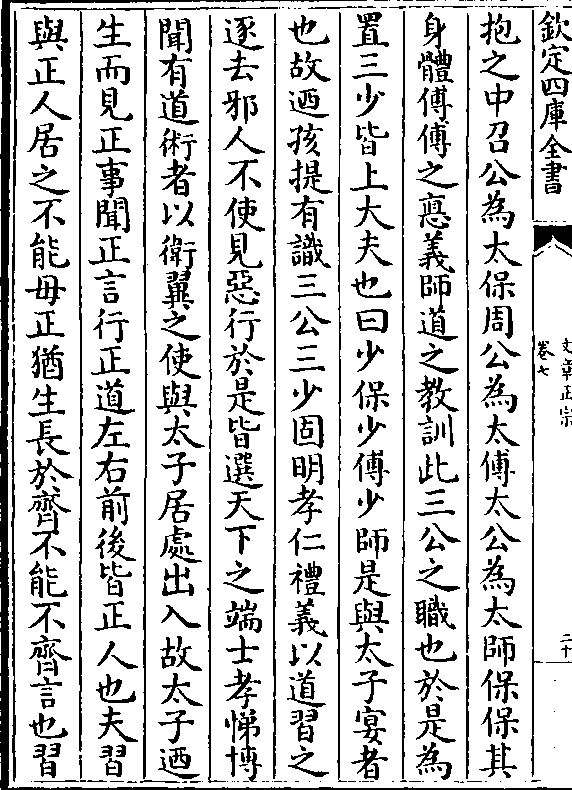 欽定四庫全書
文章正宗
卷七
二十
抱之中召公為太保周公為太傅太公為太師保保其
身體傅傅之德義師道之教訓此三公之職也於是為
置三少皆上大夫也曰少保少傅少師是與太子宴者
也故迺孩提有識三公三少固明孝仁禮義以道習之
逐去邪人不使見惡行於是皆選天下之端士孝悌博
聞有道術者以衛翼之使與太子居處出入故太子迺
生而見正事聞正言行正道左右前後皆正人也夫習
與正人居之不能毋正猶生長於齊不能不齊言也習